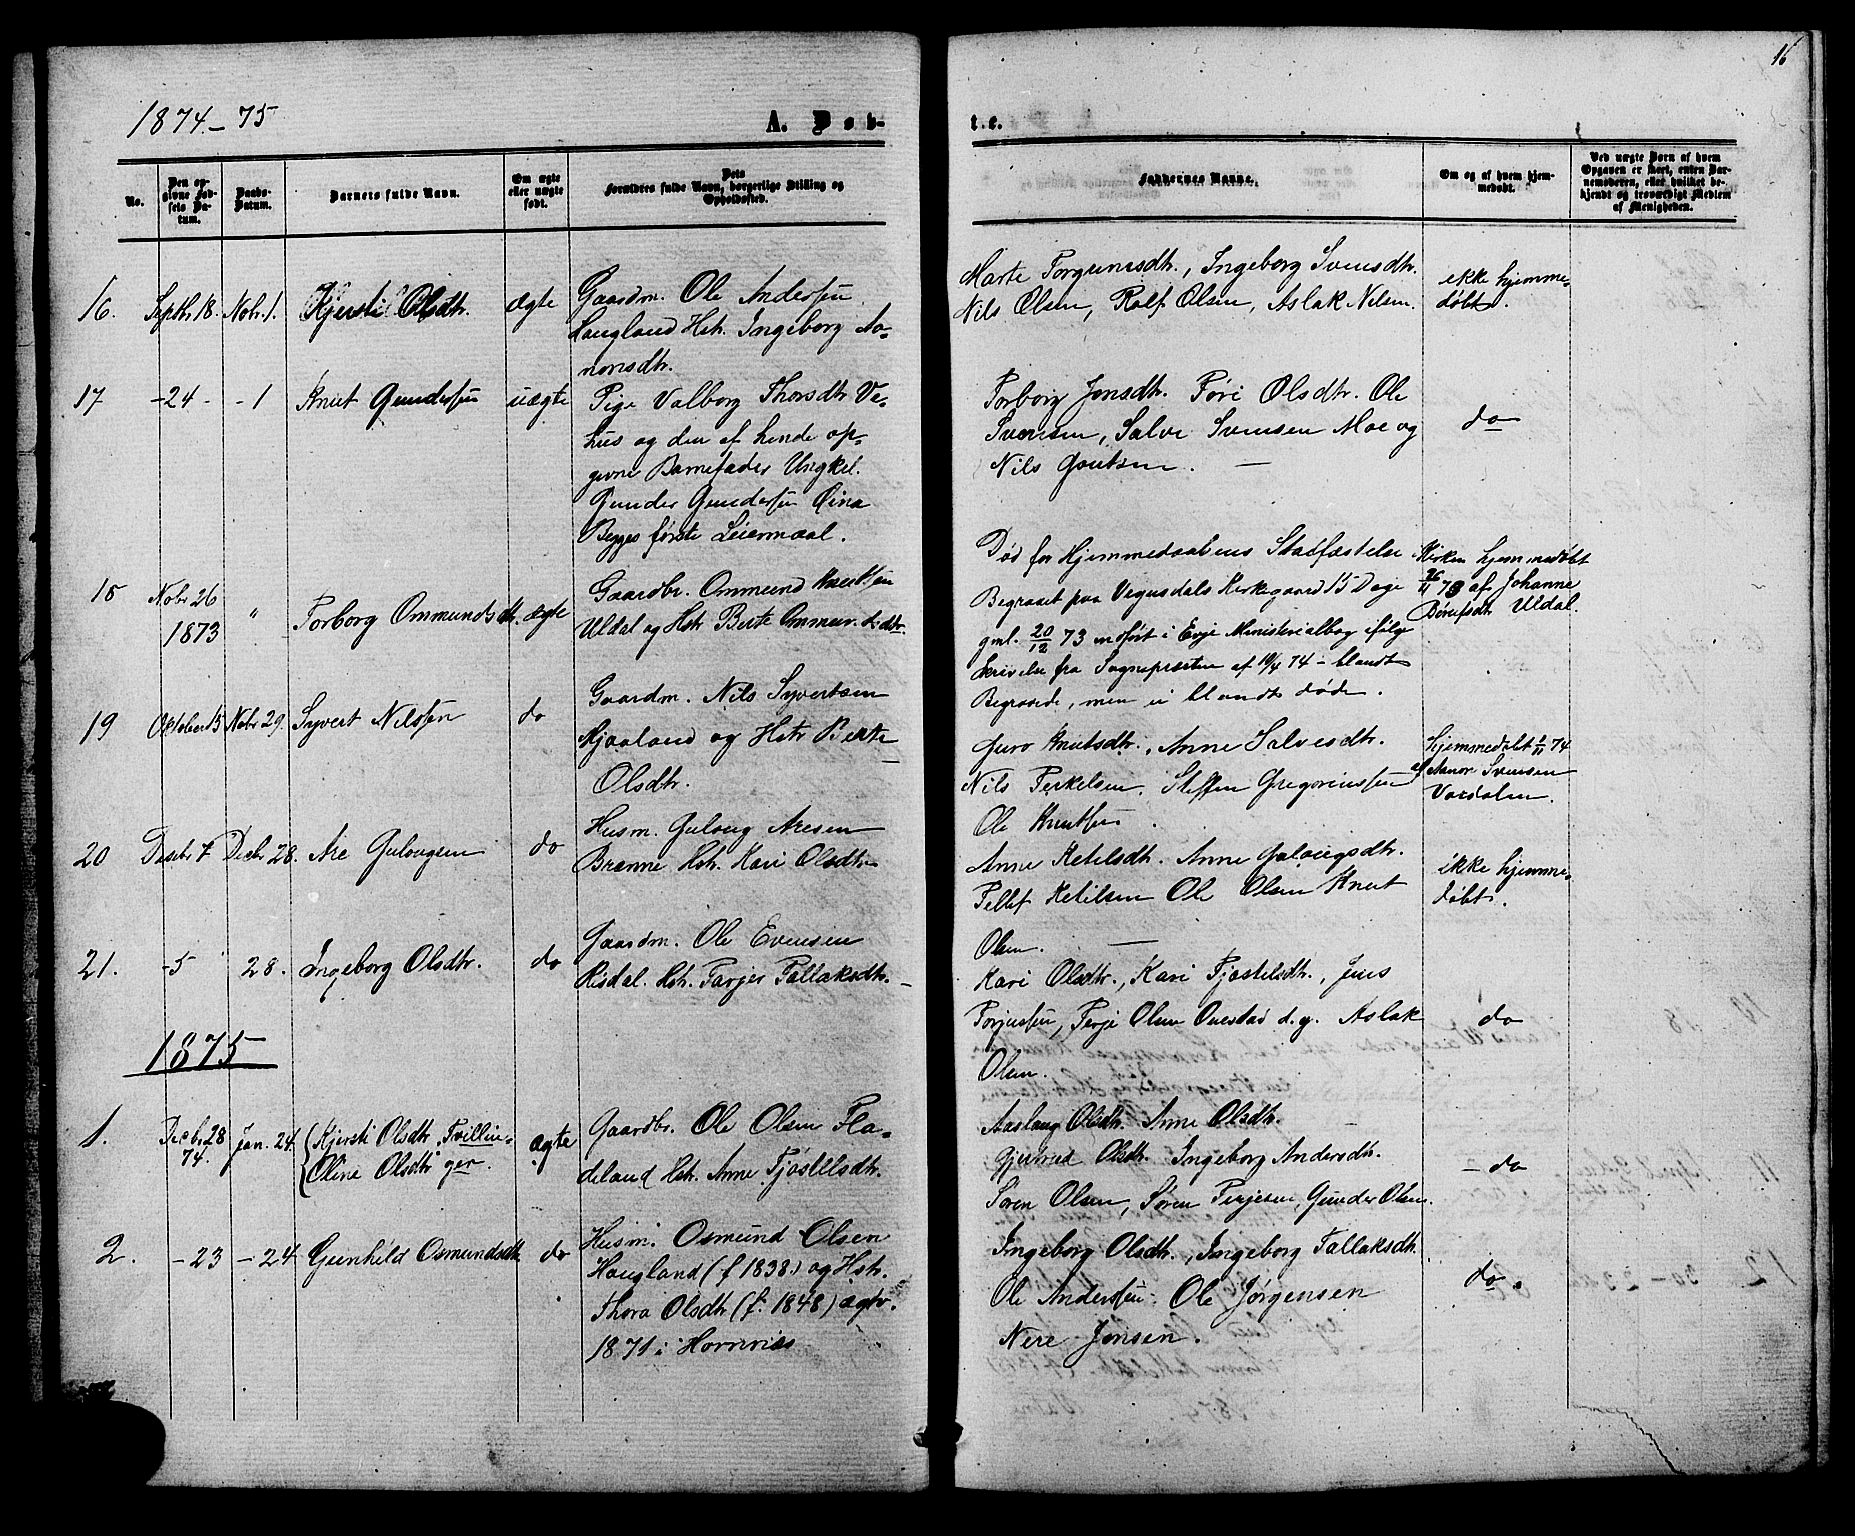 16
1874-75
A. Døb-
te.
No.
Den op-
givne Fød-
sels Da-
tum.
Daabs-
Datum.
Barnets fulde Navn.
Om ægte
eller uægte
født.
Dets
Forældres fulde Navn, borgerlige Stilling og
Opholdssted.
Faddernes Navne.
Om og af hvem hjem-
medøbt.
Ved uægte Børn af hvem
Opgaven er skeet, enten Bar-
nemoderen, eller hvilket be-
kjendt og troværdigt Medlem
af Menigheden.
16. Septbr. 18. Nobr. 1. Kjersti Olsdtr. ægte
Gaardm. Ole Andersen
Haugland Hst. Ingeborg Aa-
nonsdtr.
Marte Torgrimsdtr., Ingeborg Svensdtr.
Nils Olsen, Rolf Olsen, Aslak Nilsen.
ikke hjemme-
døbt.
17 -24- -1 Knut Gundersen uægte
Pige Valborg Thorsdtr. Ve-
hus og den af hende op-
givne Barnefader Ungkel.
Gunder Gundersen
Begges første Leiermaal.
Torborg Jonsdtr. Olsdtr. Ole
Svensen, Salve Svensen Moe og
Nils Goutsen. —
do
18 Nobr 26
1873 " Torborg Ommundsdtr. ægte
Gaardbr. Ommund Knutsen
Uldal og Hstr Berte
Død før Hjemmedaabens Stadfæstelse
Begravet paa Vegusdals Kirkegaard 15 Dage
gml. 20/12 73 indført i Evje Ministerialbog ifølge
Skrivelse fra Sognepræsten af 74 - blandt
Begravede, men ei blandt døde.
hjemmedøbt
26/11 73 af Johanne
Uldal.
19 Oktober 15 Nobr 29. Syvert Nilssen do
Gaardm. Nils Syvertsen
Mjaaland og Hstr Berte
Olsdtr.
Guro Knutsdtr., Anne Salvesdtr.
Nils Terkelsen, Steffen Gregoriussen
Ole Knutsen.
hjemmedøbt 1/11 74
af Aanon Svensen
20 Decbr 7 Decbr 28. Are Gulougsen do
Husm. Guloug Aresen
Brænne Hst. Kari Olsdtr
Anne Ketilsdtr. Anne Gulougsdtr.
Tellef Ketilsen Ole Olsen Knut
Olsen. —
ikke hjemme-
døbt.
21. -5 28. Ingeborg Olsdtr. do
Gaardm. Ole Evensen
Risdal. Hst. Targjer Tallaksdtr. -
Kari Olsdtr., Kari Fjøstelsdtr., Jens
Torjussen, Terje Olsen d. y. Aslak
Olsen.
do
1875
1. Decbr 28
74. Jan. 24. {Kjersti Olsdtr. Tvillin-
Oline Olsdtr ger. ægte
Gaardbr. Ole Olsen Fla-
deland Hst. Anne Fjøstelsdtr.
Aaslaug Olsdtr. Anne Olsdtr.
Gjertrud Olsdtr. Ingeborg Andersdtr.
Søren Olsen, Søren Terjesen, Gunder Olsen.
- do
2. -23 -24 Gunhild Osmundsdtr do
Husm. Osmund Olsen
Haugland (f 1838) og Hst.
Thora Olsdtr (f. 1848) ægtv.
1871 i Hornnæs
Ingeborg Olsdtr., Ingeborg Tallaksdtr.
Ole Andersen. Ole Jørgensen
Nere Jensen.
do.